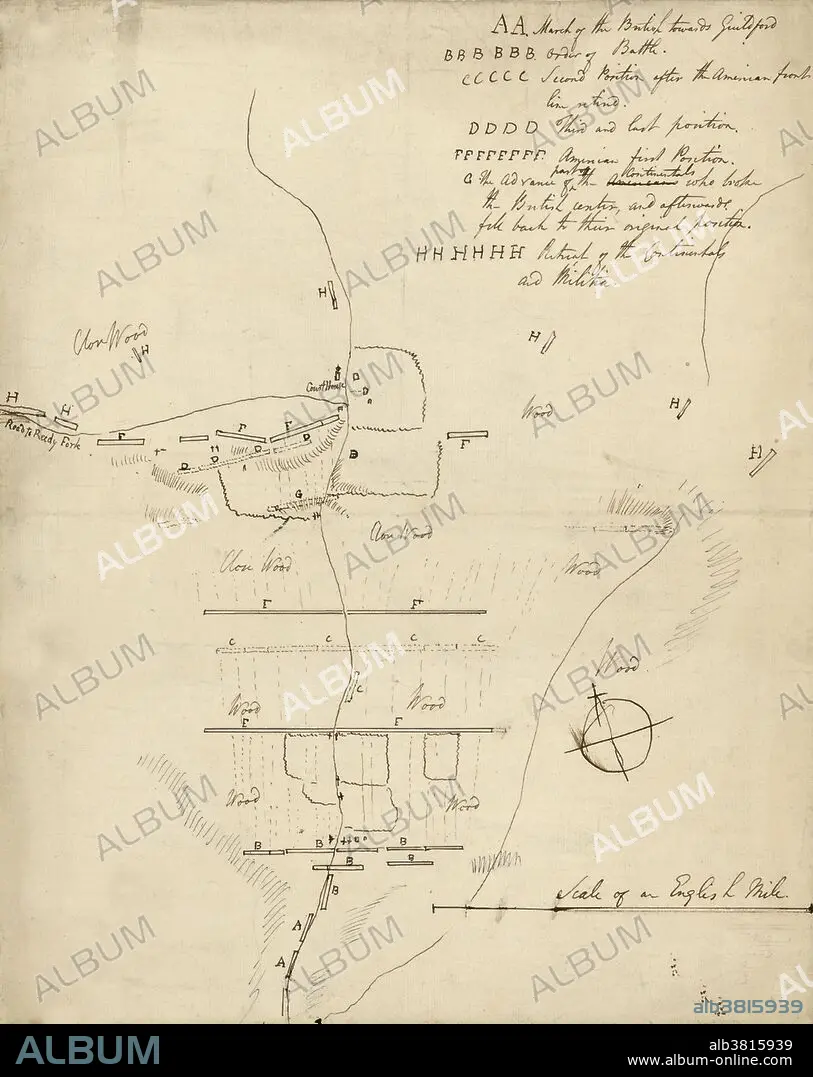 AA. March of the British towards Guildford
BBB BBB. Order of Battle.
CCCCC Second Position after the American front
line retired.
DDDD Third and last position.
FFFFFFFF American first Position.
part of Continentals
G The Advance of the Americans who broke
the British center, and afterwards
fell back to their original position.
HHHHHH Retreat of the Continentals
and Militia
H
Wood
H
H
Court House
D
D
H
H
Wood
H
H
H
Road to Reedy Fork
F
F
F
F
D
D
D
D
D
H
G
Wood
Wood
Wood
F
F
C
C
C
C
Wood
C
Wood
Wood
F
F
Wood
Wood
B
B
B
B
B
B
B
A
A
Scale of an English Mile.
ALBUM
alb3815939
ALBUM
alb3815939
www.album-online.com